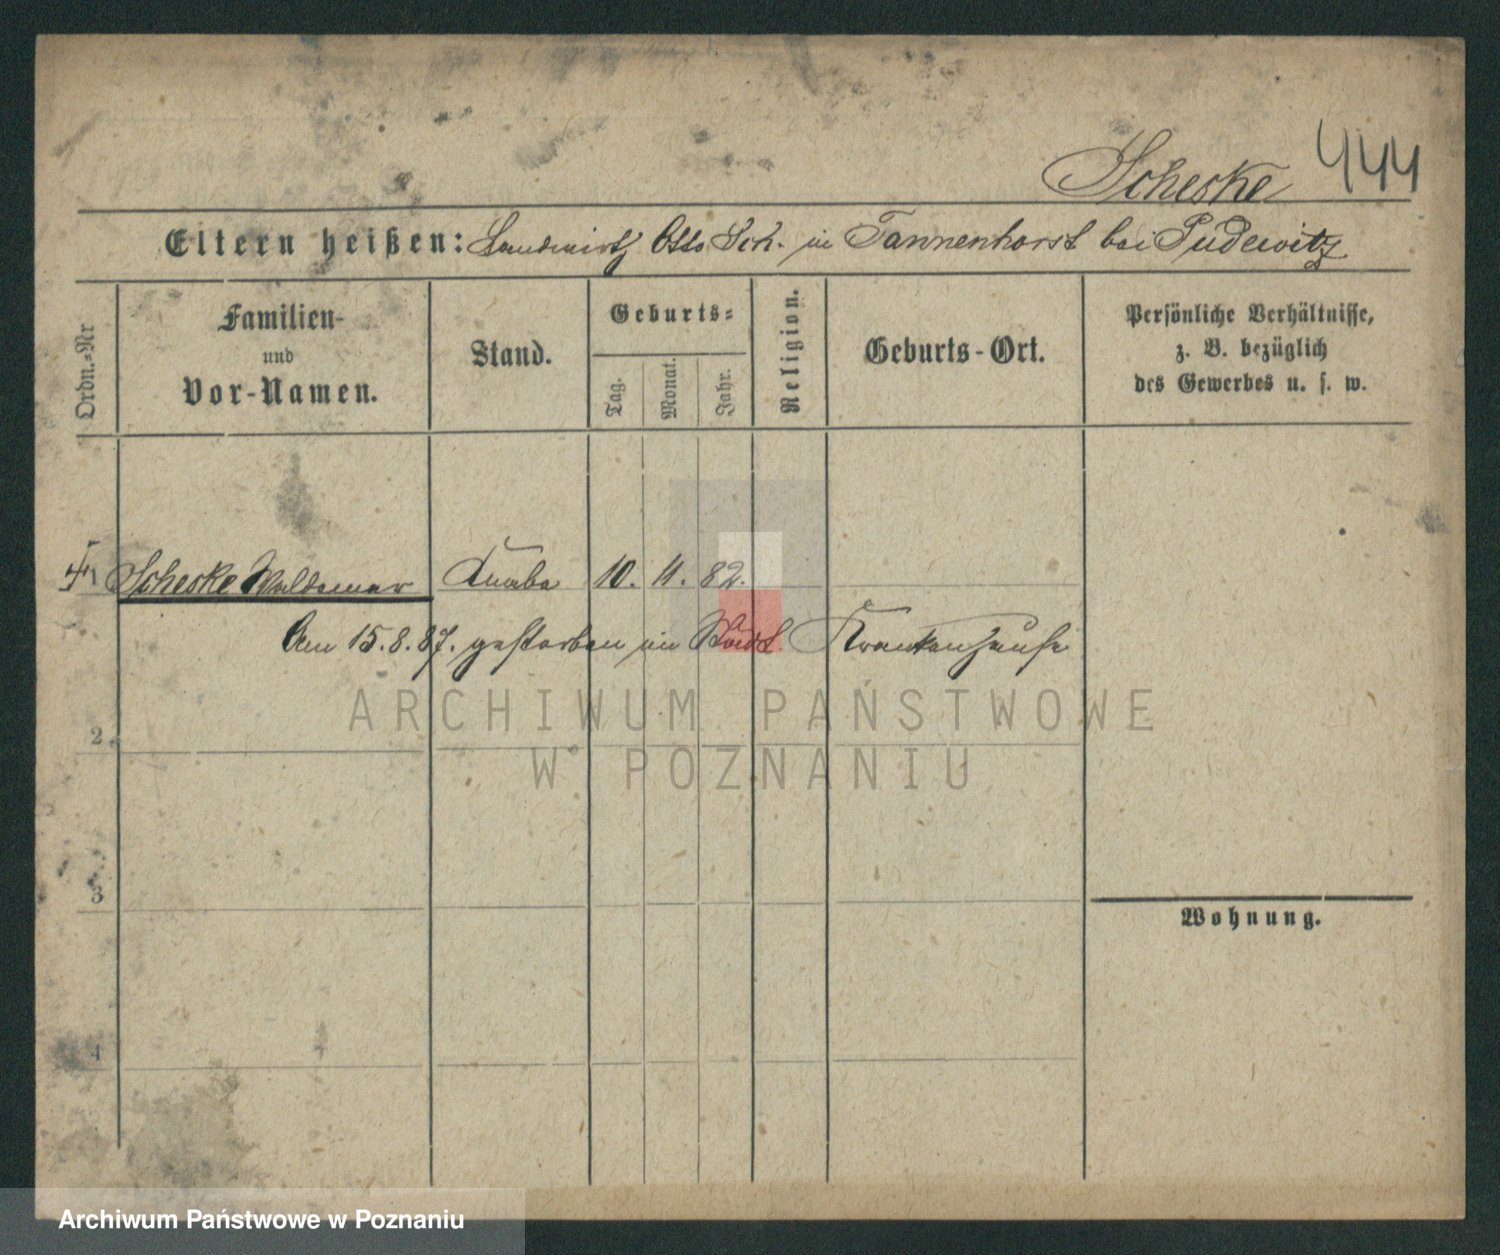 444
Scheske
Eltern heißen: Landwirt Otto Sch. in Tannenhorst bei Pudewitz
Ordn.=Nr
Familien-
und
Vor-Namen.
Stand.
Geburts=
Tag.
Monat.
Jahr.
Religion.
Geburts-Ort.
Persönliche Verhältnisse,
z. B. bezüglich
des Gewerbes u. s. w.
1 Scheske Waldemar Knabe 10. 11. 82.
Am 15.8.87. gestorben im Stadt. Krankenhause
ARCHIWUM PAŃSTWOWE
W POZNANIU
2
3
Wohnung.
4
Archiwum Państwowe w Poznaniu